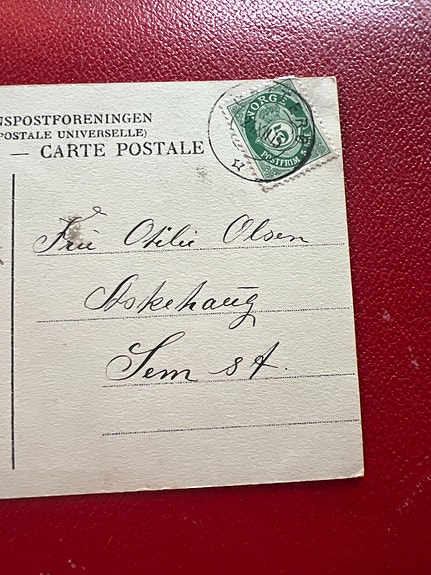 NSPOSTFORENINGEN
POSTALE UNIVERSELLE)
— CARTE POSTALE
NORGE
5
POSTFRIM 5 ØRE
Fru Otilie Olsen
Askehaug
Sem st.